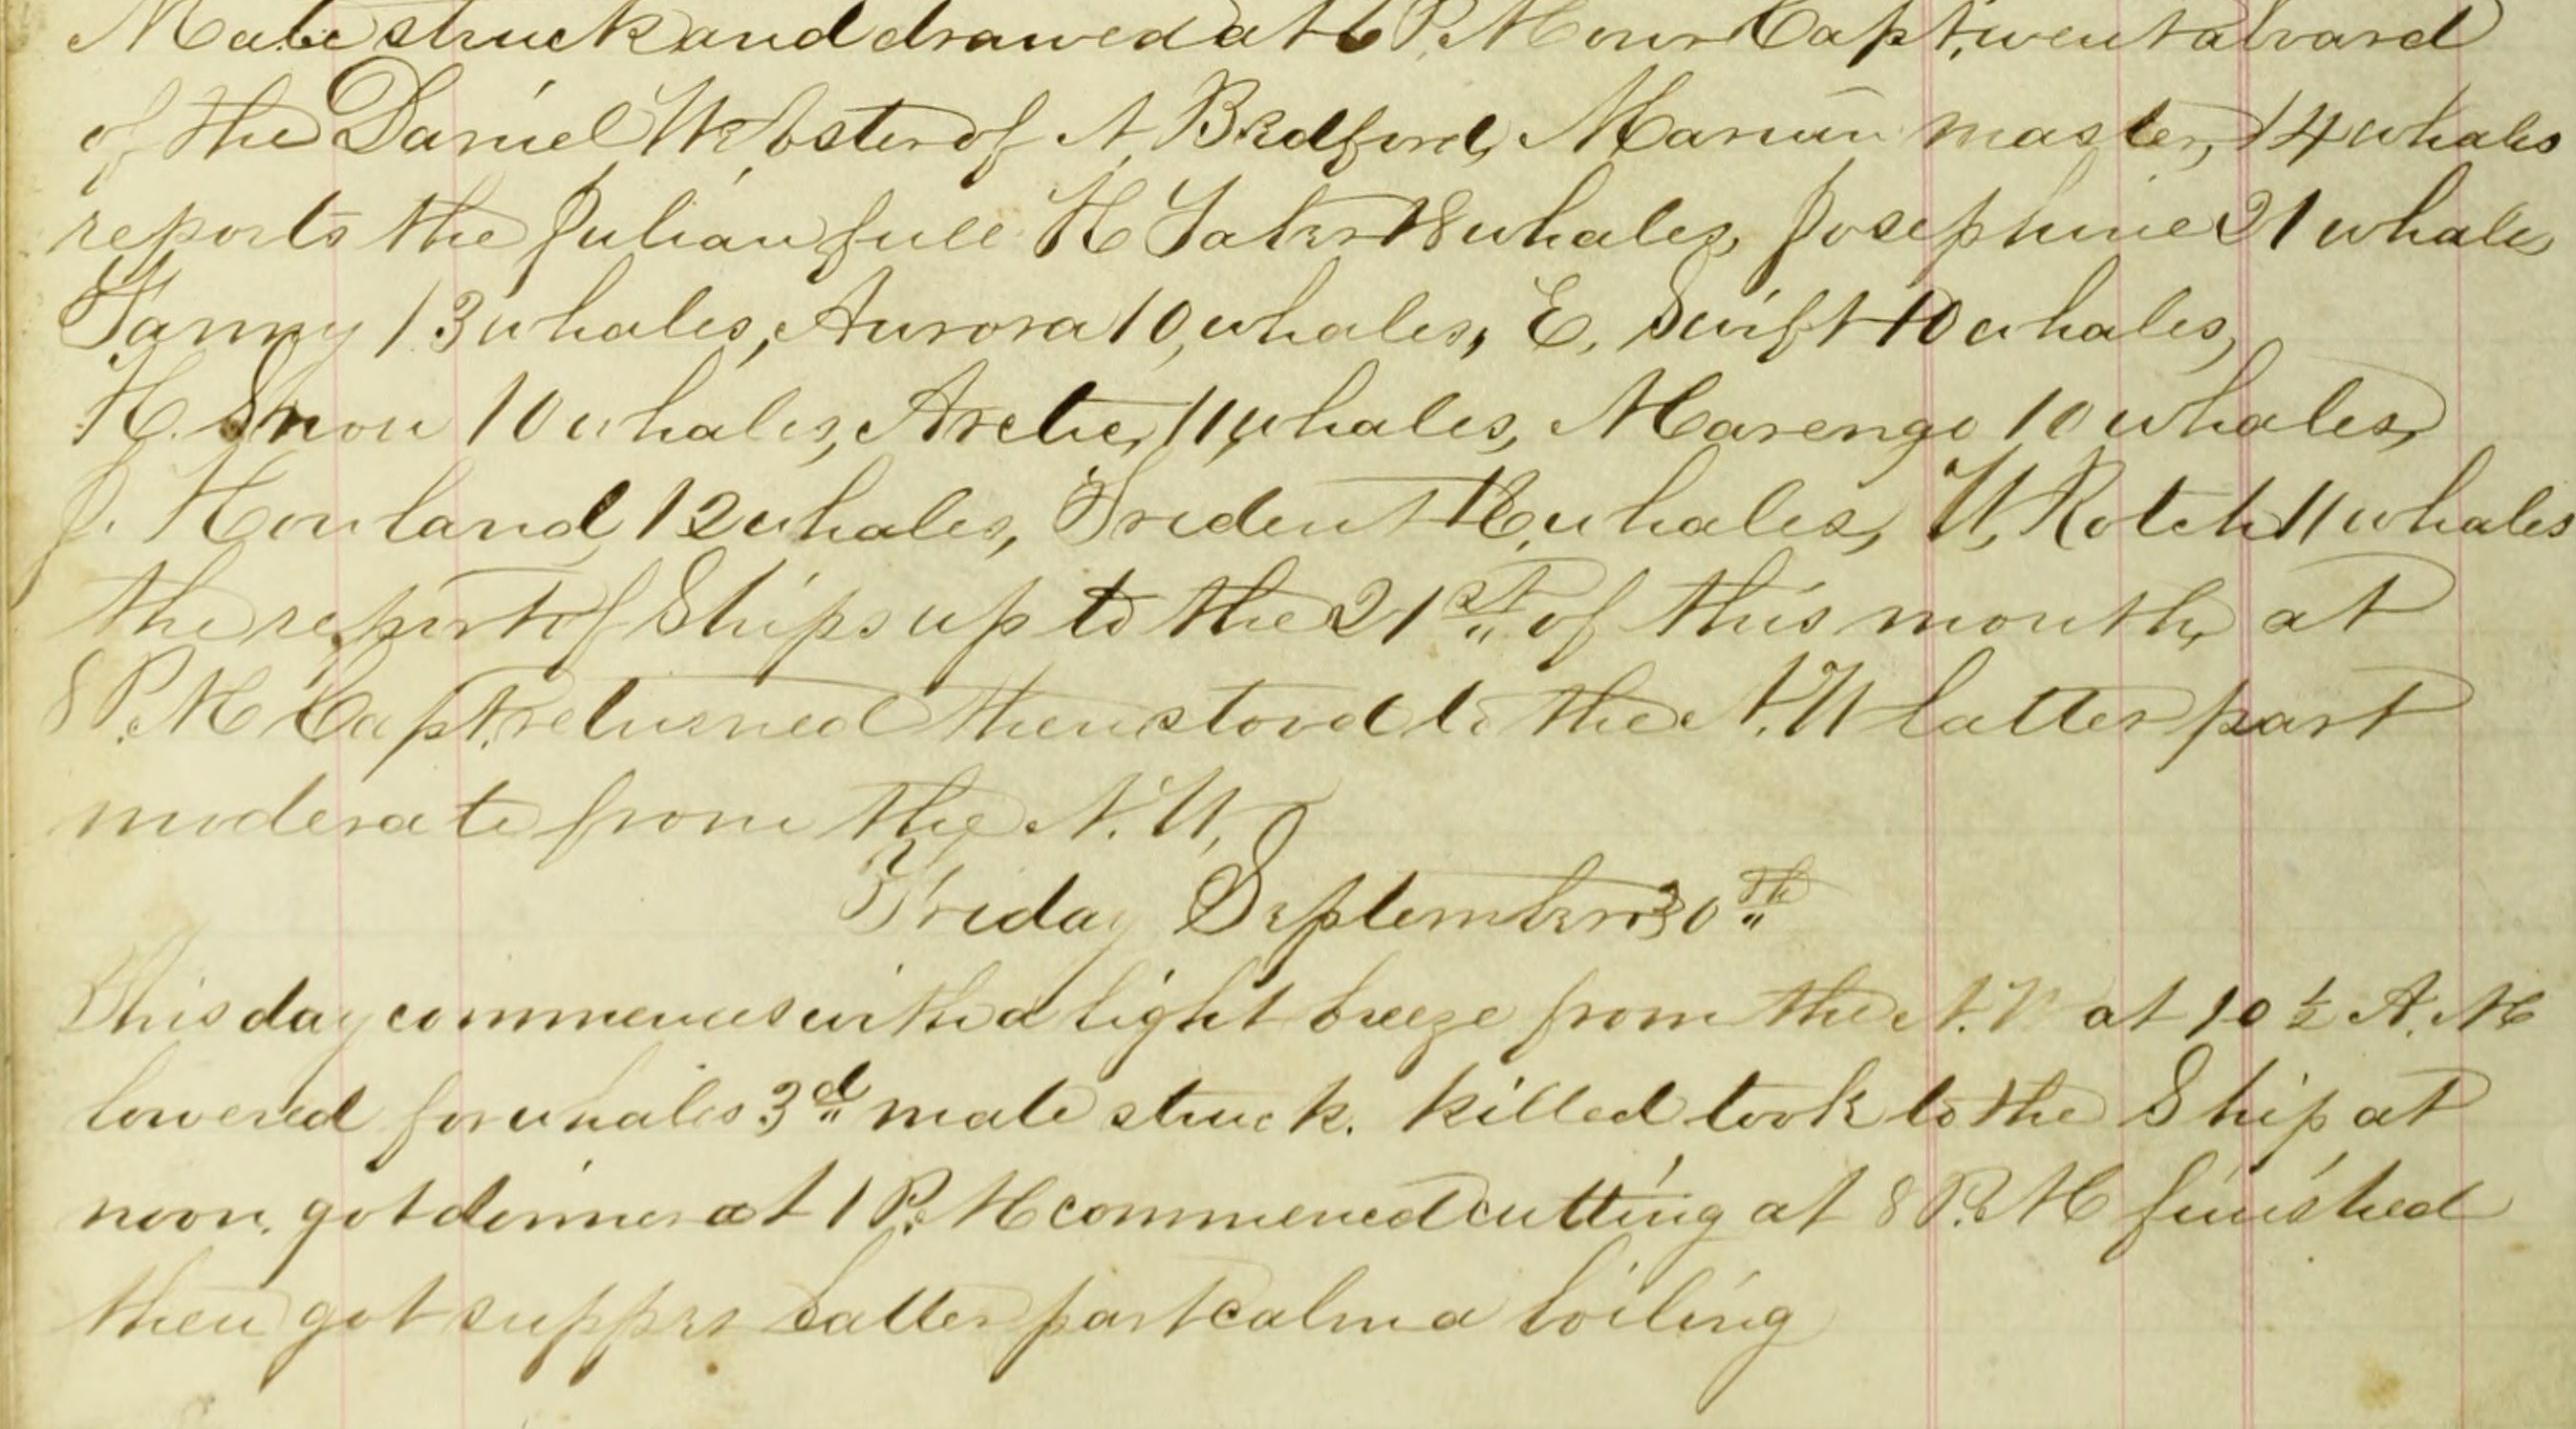 Mate struck and drawed at 6 P.M our Capt, went aboard
of the Daniel Webster of N. Bedford, master, 14 whales
reports the Julian full H Taber 18 whales, Josephine 21 whale
Fanny 13 whales, Aurora 10, whales, E. Swift 10 whales,
H. Snow 10 whales, Arctic, 11, whales, Marengo 10 whales,
J. Howland, 12 whales, Trident whales, W, Rotch 11 whales
the report of Ships up to the 21st of this month, at
8 P.M Capt. returned then stood to the N.W latter part
moderate from the N.W,
Friday September 30th
This day commences with a light breeze from the N.W at 10 ½ A.M
lowered for whales 3d mate struck. killed took to the Ship at
noon. got dinner at 1 P.M commenced cutting at 8 P.M finished
then got supper Latter part calm a boiling